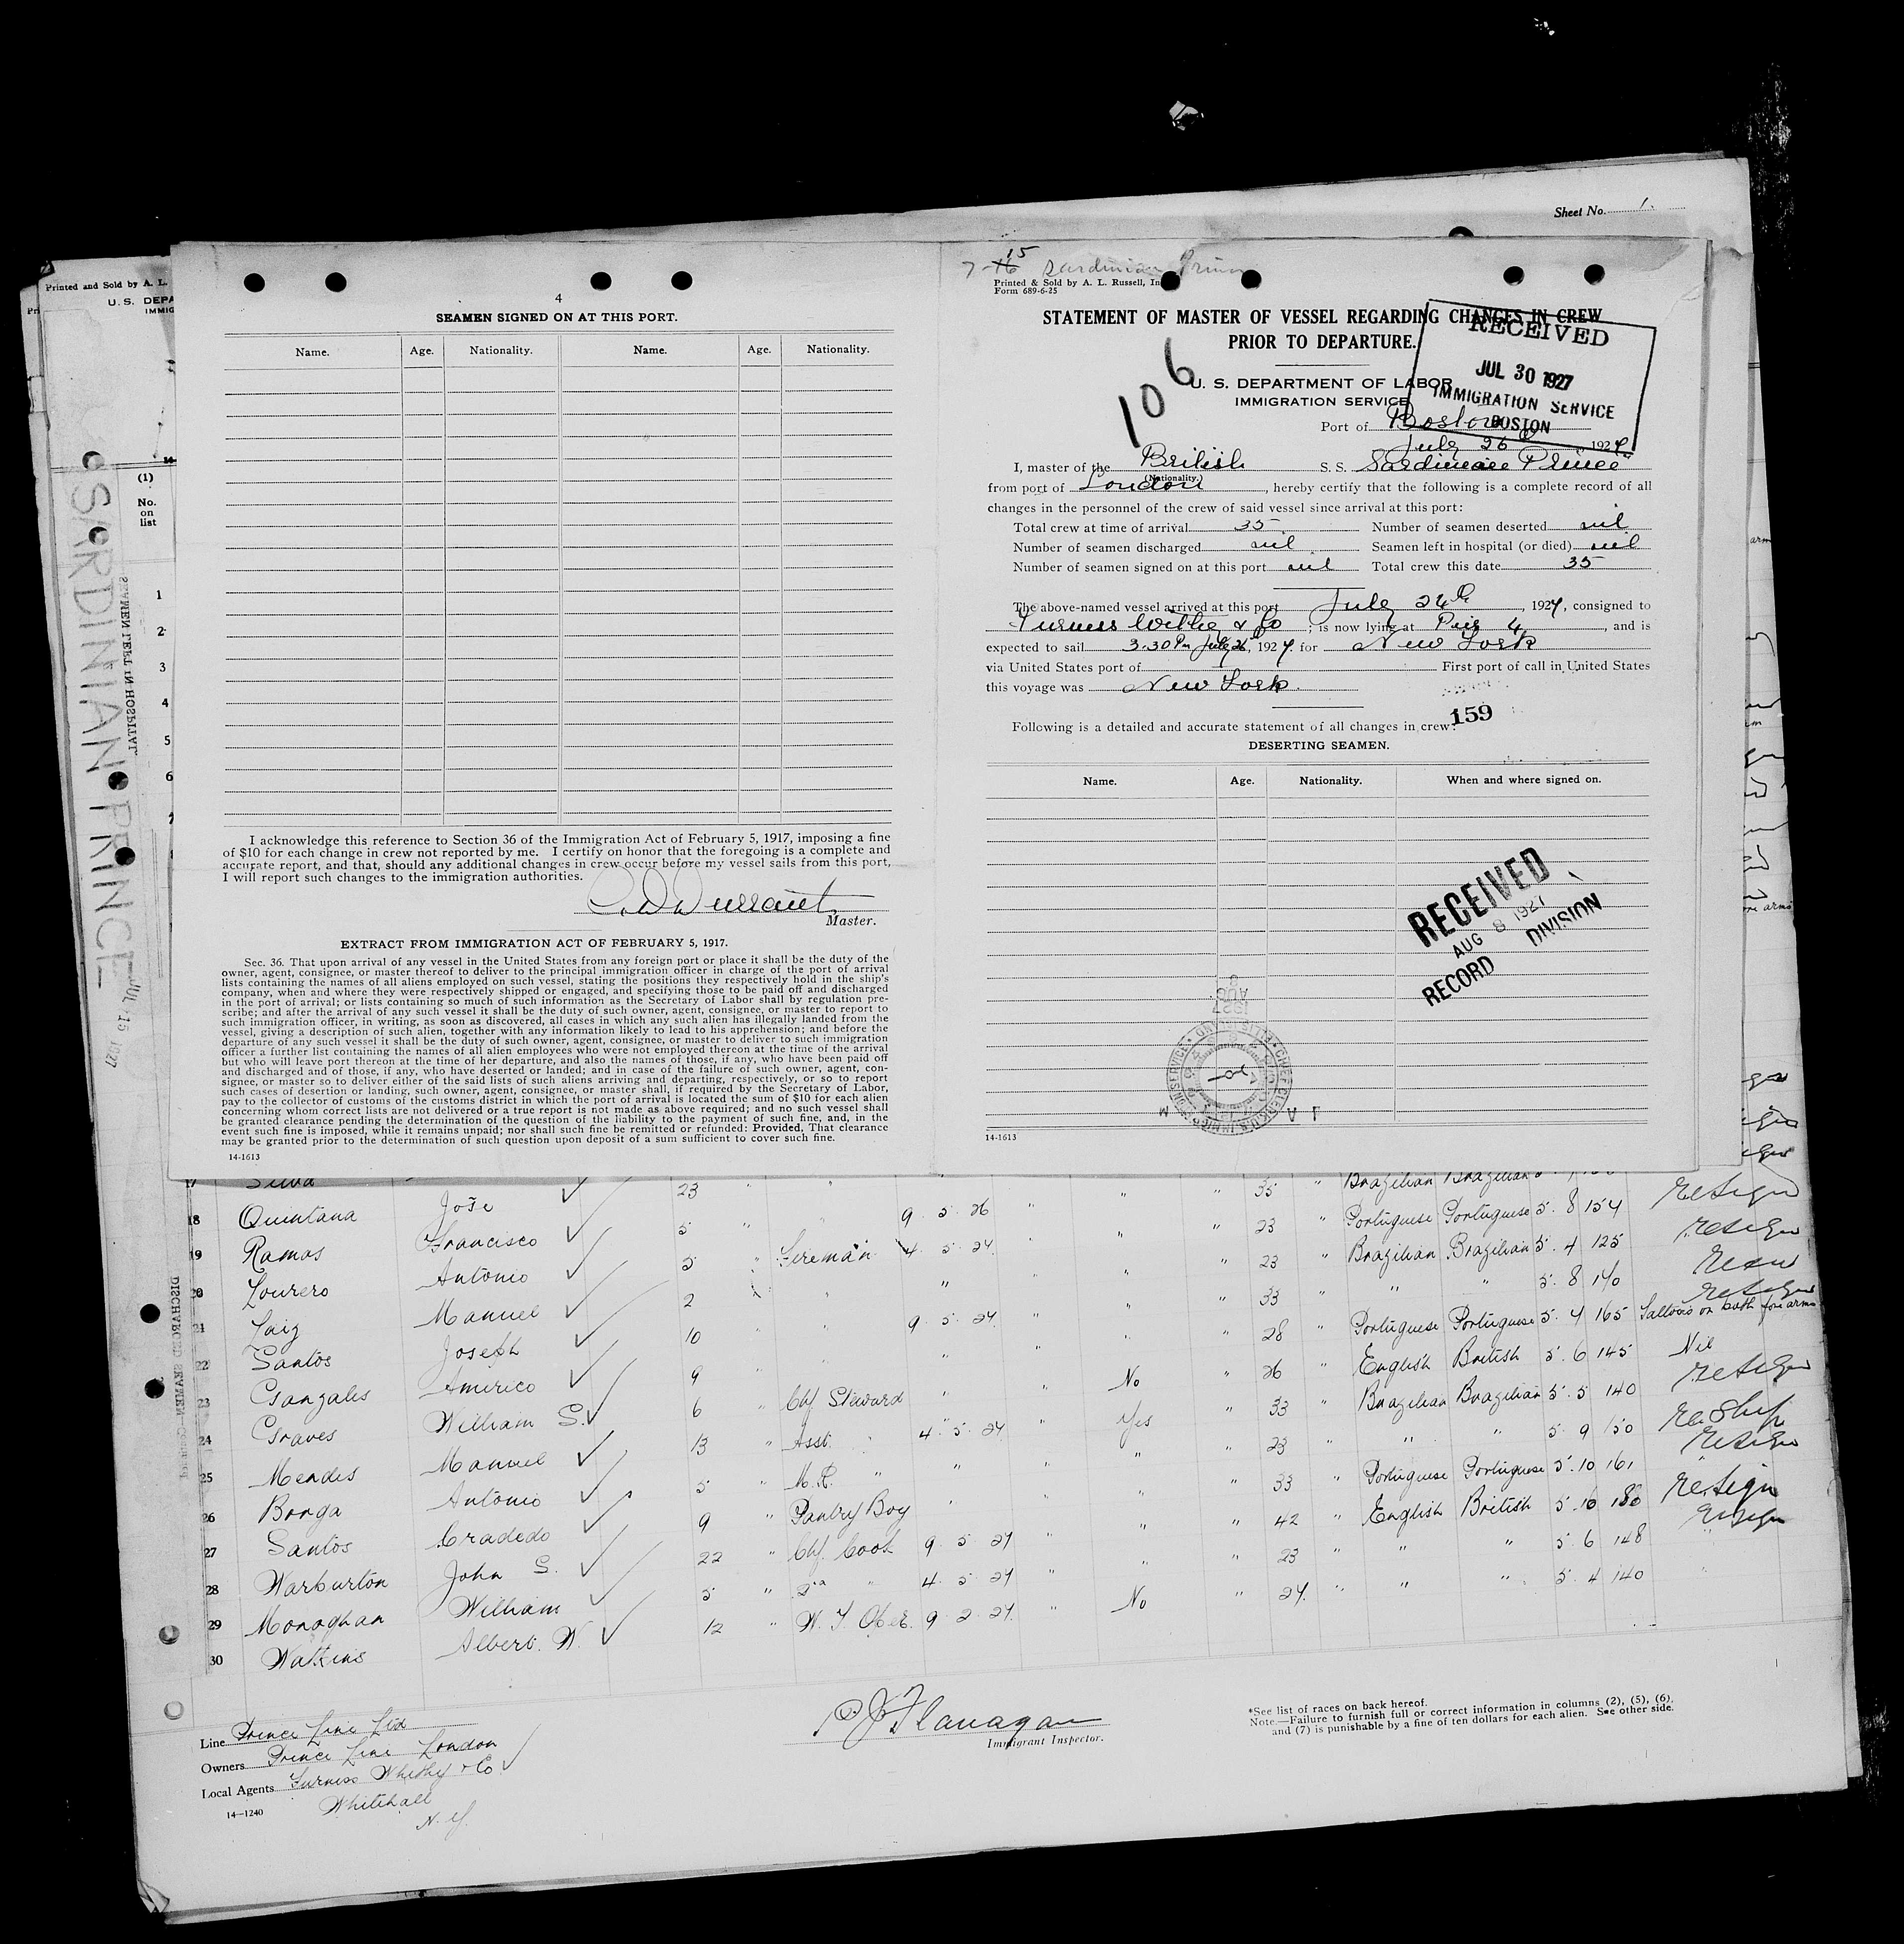 Sheet No. 1.
Printed and Sold by A. L.
U. S. DEPA
IMMIG
(1)
No.
on
list
1
2
3
4
5
6
SARDINIAN PRINCE
JUL 15 1927
SEAMEN LEFT IN HOSPITAL
DISCHARGED SEAMEN—Continued
4
SEAMEN SIGNED ON AT THIS PORT.
Name. Age. Nationality. Name. Age. Nationality.
I acknowledge this reference to Section 36 of the Immigration Act of February 5, 1917, imposing a fine
of $10 for each change in crew not reported by me. I certify on honor that the foregoing is a complete and
accurate report, and that, should any additional changes in crew occur before my vessel sails from this port,
I will report such changes to the immigration authorities.
C. D. Durrant
Master.
EXTRACT FROM IMMIGRATION ACT OF FEBRUARY 5, 1917.
Sec. 36. That upon arrival of any vessel in the United States from any foreign port or place it shall be the duty of the
owner, agent, consignee, or master thereof to deliver to the principal immigration officer in charge of the port of arrival
lists containing the names of all aliens employed on such vessel, stating the positions they respectively hold in the ship's
company, when and where they were respectively shipped or engaged, and specifying those to be paid off and discharged
in the port of arrival; or lists containing so much of such information as the Secretary of Labor shall by regulation pre-
scribe; and after the arrival of any such vessel it shall be the duty of such owner, agent, consignee, or master to report to
such immigration officer, in writing, as soon as discovered, all cases in which any such alien has illegally landed from the
vessel, giving a description of such alien, together with any information likely to lead to his apprehension; and before the
departure of any such vessel it shall be the duty of such owner, agent, consignee, or master to deliver to such immigration
officer a further list containing the names of all alien employees who were not employed thereon at the time of the arrival
but who will leave port thereon at the time of her departure, and also the names of those, if any, who have been paid off
and discharged and of those, if any, who have deserted or landed; and in case of the failure of such owner, agent, con-
signee, or master so to deliver either of the said lists of such aliens arriving and departing, respectively, or so to report
such cases of desertion or landing, such owner, agent, consignee, or master shall, if required by the Secretary of Labor,
pay to the collector of customs of the customs district in which the port of arrival is located the sum of $10 for each alien
concerning whom correct lists are not delivered or a true report is not made as above required; and no such vessel shall
be granted clearance pending the determination of the question of the liability to the payment of such fine, and, in the
event such fine is imposed, while it remains unpaid; nor shall such fine be remitted or refunded: Provided, That clearance
may be granted prior to the determination of such question upon deposit of a sum sufficient to cover such fine.
14-1613
7-16 15 Sardinian Prince
Printed & Sold by A. L. Russell, In
Form 689-6-25
STATEMENT OF MASTER OF VESSEL REGARDING CHANGES IN CREW
PRIOR TO DEPARTURE.
106
U. S. DEPARTMENT OF LABOR
IMMIGRATION SERVICE
RECEIVED
JUL 30 1927
IMMIGRATION SERVICE
BOSTON
Port of Boston
July 26, 1927
I, master of the British S. S. Sardinian Prince
(Nationality.)
from port of London, hereby certify that the following is a complete record of all
changes in the personnel of the crew of said vessel since arrival at this port:
Total crew at time of arrival 35 Number of seamen deserted nil
Number of seamen discharged nil Seamen left in hospital (or died) nil
Number of seamen signed on at this port nil Total crew this date 35
The above-named vessel arrived at this port July 24th, 1927, consigned to
Furness Withy & Co; is now lying at Pier 4, and is
expected to sail 3.30 Pm July 26, 1927. for New York
via United States port of First port of call in United States
this voyage was New York.
159
Following is a detailed and accurate statement of all changes in crew:
DESERTING SEAMEN.
Name. Age. Nationality. When and where signed on.
RECEIVED
AUG 8 1927
RECORD DIVISION
14-1613
17 Silva José 23 " " " " 35 " Brazilian Brazilian resign
18 Quintana Francisco 5 " " 9 5 26 " " " 23 " Portuguese Portuguese 5. 8 154 resign
19 Ramos Antonio 5 " Fireman 4. 5. 27. " " " 23 " Brazilian Brazilian 5. 4 125
20 Lourero Manuel 2 " " " " " 33 " " " 5. 8 140 resign
21 Laiz Joseph 10 " " 9. 5. 27. " " " 28 " Portuguese Portuguese 5. 4 165 Tattoos on both fore arms
22 Santos Americo 9 " " " " No " 26 " English British 5. 6 145 Nil
23 Gonzales William S. 6 " Chf Steward " " Yes " 33 " Brazilian Brazilian 5. 5 140 resign
24 Graves Manuel 13 " Asst. " 4. 5. 27 " " " 23 " " " 5. 9 150 reship
25 Mendes Antonio 5 " M. R. " " " " " 33 " Portuguese Portuguese 5. 10 161 resign
26 Borga Cradedo 9 " Pantry Boy " " " " 42 " English British 5. 10 180 resign
27 Santos John S. 22 " Chf. Cook 9. 5. 27 " " " 23 " " " 5. 6 148 resign
28 Warburton William 5 " 2nd " 4. 5. 27 " No " 27. " " " 5. 4 140
29 Monaghan Albert. W. 12 " W. T. Oper. 9. 2. 27. "
30 Watkins
Line Prince Line Ltd
Owners Prince Line London
Local Agents Furness Whithy & Co
Whitehall
N. Y.
14—1240
P J Flanagan
Immigrant Inspector.
*See list of races on back hereof.
Note.—Failure to furnish full or correct information in columns (2), (5), (6),
and (7) is punishable by a fine of ten dollars for each alien. See other side.